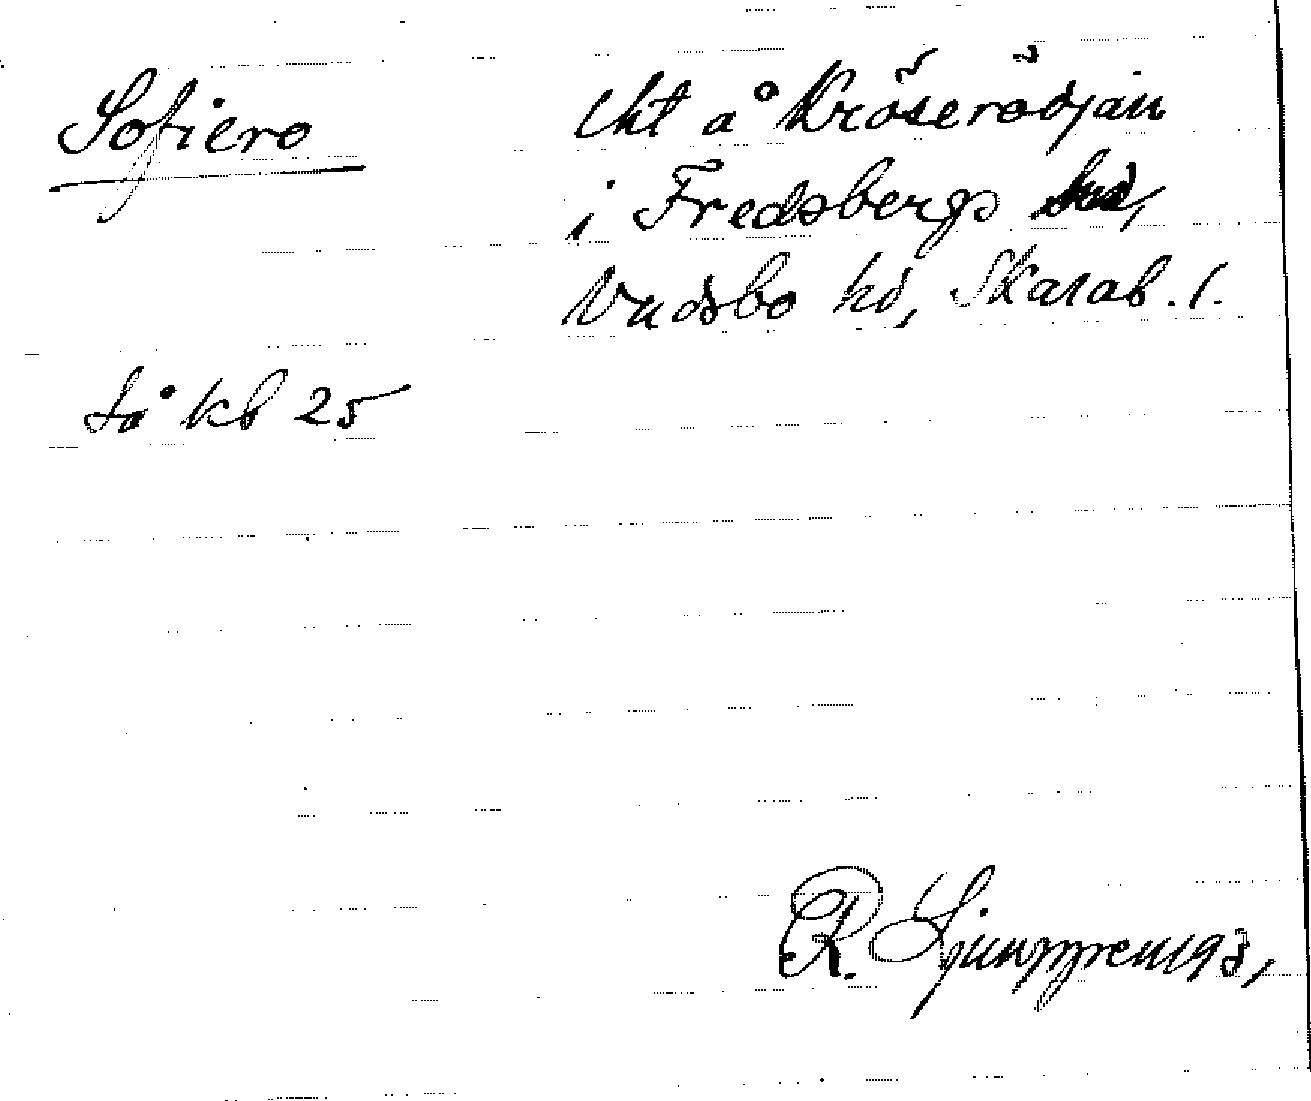 Sofiero
Lht å Kröserödjan
i Fredsbergs sn,
Vadsbo hd, Skarab. l.
så kb 25
R. Ljunggren 193,